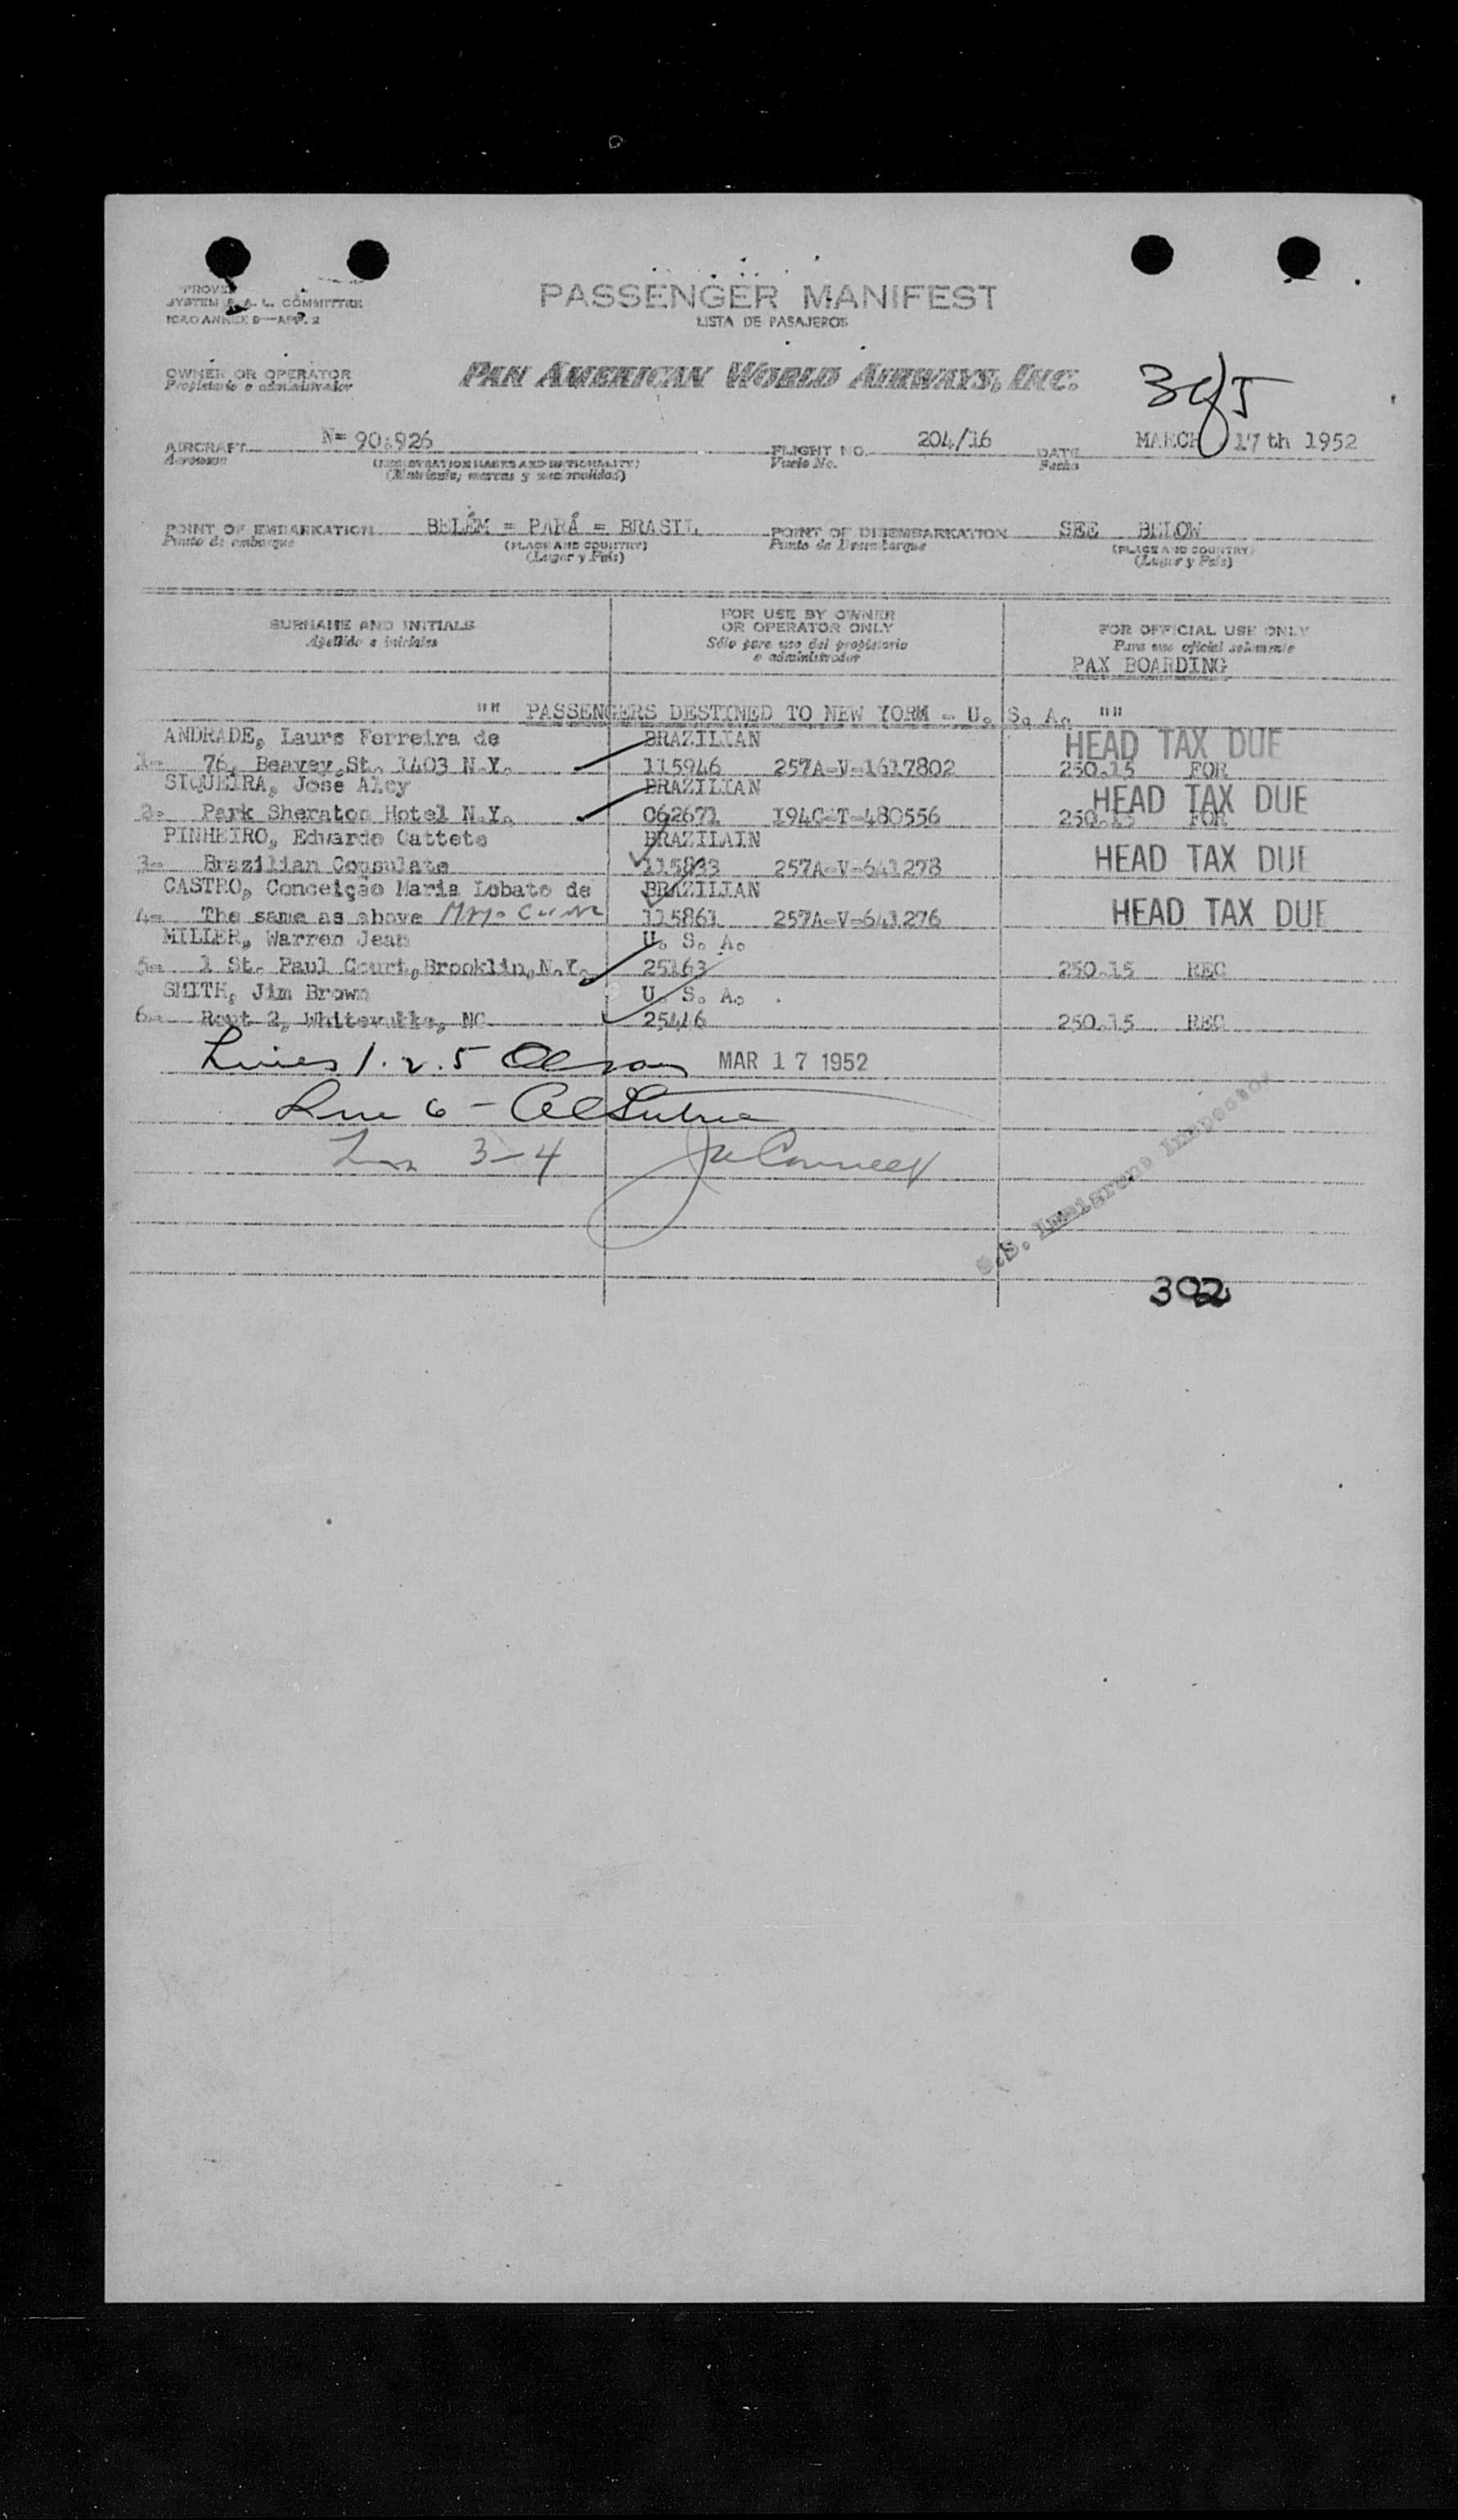 SYSTEM F. A. L. COMMITTEE
ICAO ANNEX 9—APP. 2
PASSENGER MANIFEST
LISTA DE PASAJEROS
OWNER OR OPERATOR
Propietario o administrador
PAN AMERICAN WORLD AIRWAYS, INC.
AIRCRAFT N= 90.926 FLIGHT NO. 204/16 DATE MARCH 17th 1952
Aeronave (REGISTRATION MARKS AND NATIONALITY) Vuelo No. Fecha
(Matrícula, marcas y nacionalidad)
POINT OF EMBARKATION BELÉM = PARÁ = BRASIL POINT OF DISEMBARKATION SEE BELOW
Punto de embarque (PLACE AND COUNTRY) Punto de Desembarque (PLACE AND COUNTRY)
(Lugar y País) (Lugar y País)
SURNAME AND INITIALS FOR USE BY OWNER OR OPERATOR ONLY FOR OFFICIAL USE ONLY
Apellido e iniciales Sólo para uso del propietario o administrador Para uso oficial solamente
PAX BOARDING
"" PASSENGERS DESTINED TO NEW YORK - U. S. A. ""
ANDRADE, Laura Ferreira de BRAZILIAN HEAD TAX DUE
1= 76, Beavey St. 1403 N.Y. 115946 257A-V-1617802 250.15 FOR
SIQUEIRA, José Alcy BRAZILIAN HEAD TAX DUE
2= Park Sheraton Hotel N.Y. 062671 194C-T-480556 250.15 FOR
PINHEIRO, Edwardo Cattete BRAZILAIN
3= Brazilian Consulate 115833 257A-V-641278 HEAD TAX DUE
CASTRO, Conceição Maria Lobato de BRAZILIAN
4= The same as above 115861 257A-V-641276 HEAD TAX DUE
MILLER, Warren Jean U. S. A.
5= 1 St. Paul Court, Brooklin, N.Y. 25163 250.15 REC
SMITH, Jim Brown U. S. A.
6= Rout 2, NC 25446 250.15 REC
Lines 1. 2. 5 MAR 17 1952
Line 6 -
3-4
U.S. Immigrant Inspector
302